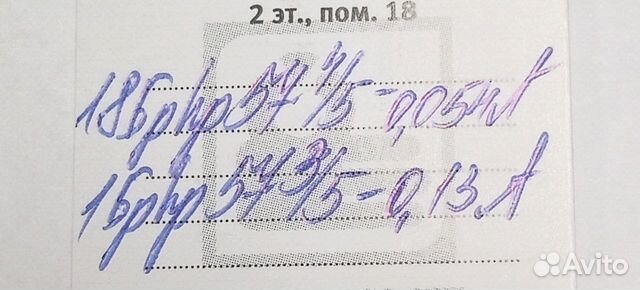 2 эт., пом. 18
18Брhр57 4/5-0,054А
1Брhр57 3/5-0,13А
Avito